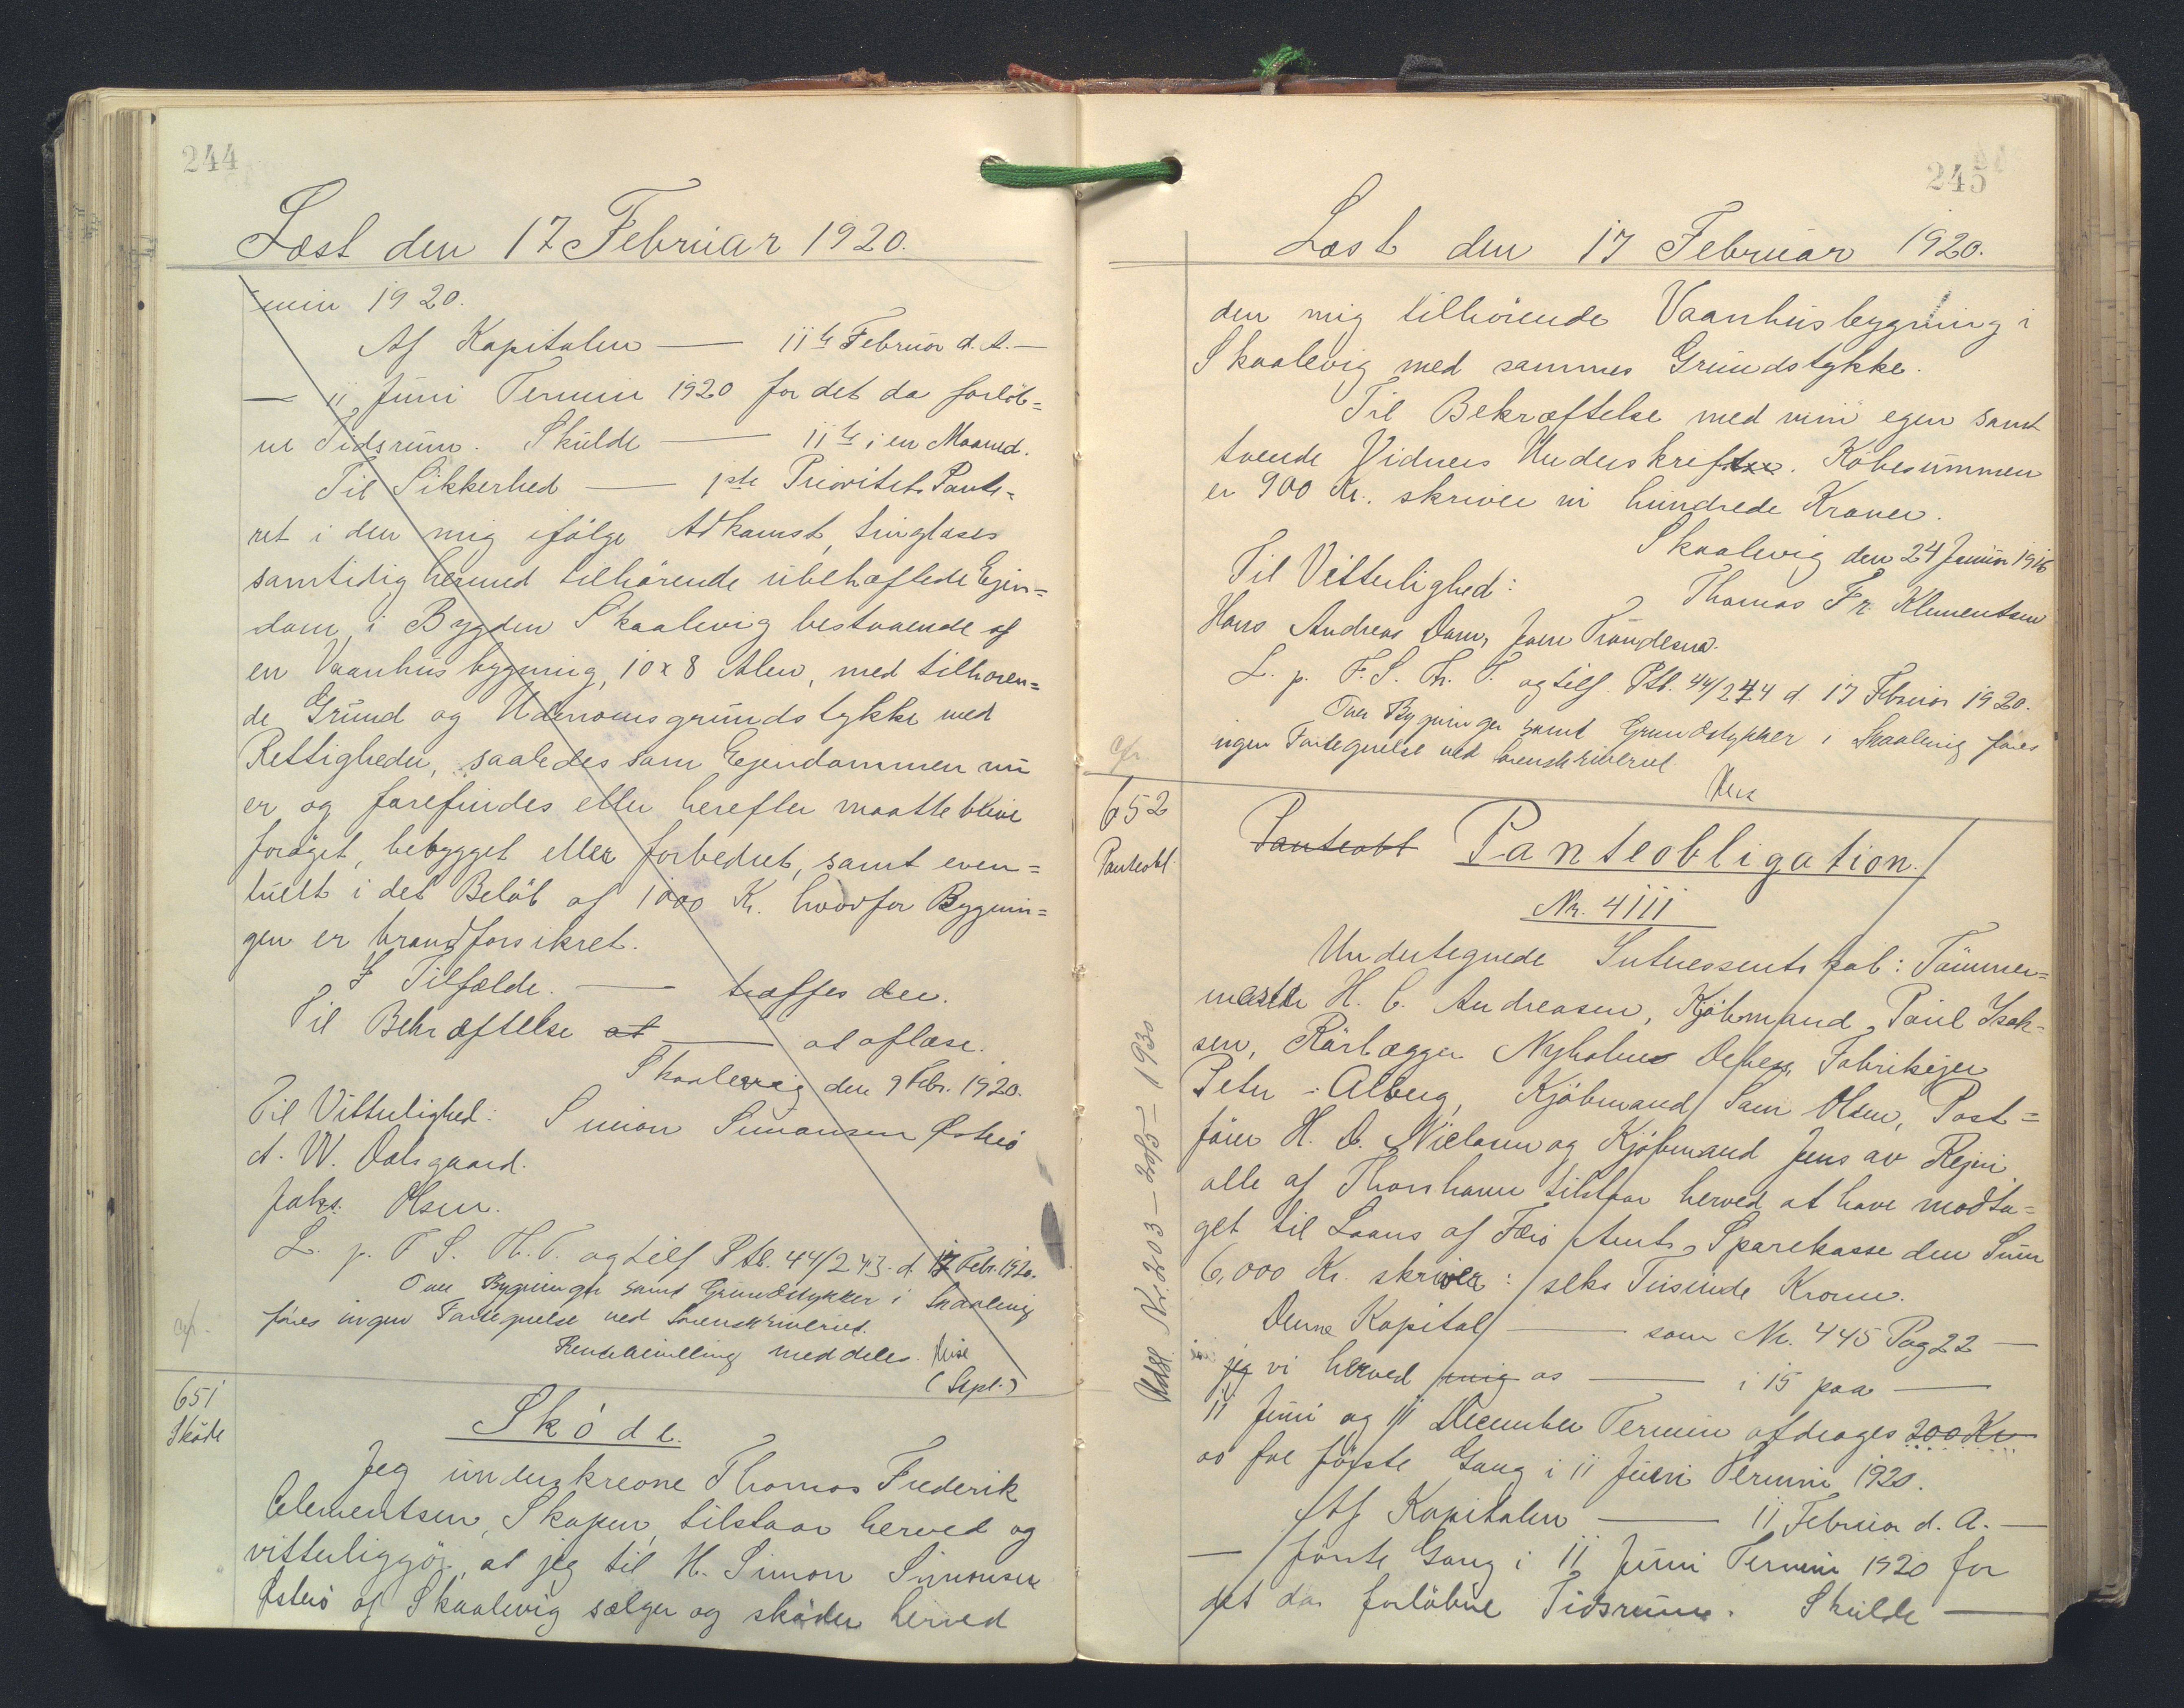 244
Læst den 17 Februar 1920.
min 1920.
Af Kapitalen — 11te Februar d. A. —
— 11 Juni Termin 1920 for det da forløb=
ne Tidsrum. Skulde — 11te i en Maaned.
Til Sikkerhed — 1ste Prioritets Pante=
ret i den mig ifølge Adkomst, tinglæses
samtidig hermed tilhørende ubehæftede Ejen=
dom, i Bygden Skaalevig bestaaende af
en Vaanhusbygning, 10 x 8 Alen, med tilhøren=
de Grund og Udenomsgrundstykke med
Rettigheder, saaledes som Ejendommen nu
er og forefindes eller herefter maatte blive
forøget, bebygget eller forbedret, samt even=
tuelt i det Beløb af 1000 Kr. hvorfor Bygnin=
gen er brandforsikret.
I Tilfælde. — træffes der.
Til Bekræftelse at — at aflæse.
Skaalevig den 9 Febr. 1920.
Til Vitterlighed: Simon Simonsen Østerø
A. W. Dalsgaard.
Jaks. Olsen.
L. p. F. S. Th. T. og tilf Ptb. 44/243. d. 17 Febr. 1920.
Over Bygninger samt Grundstykker i Skaalevig
cfr.
føres ingen Fortegnelse ved Sorenskriveriet.
Rentebevilling meddeles.
(Sept.)
651
Skøde
Skøde.
Jeg underskrevne Thomas Frederik
Clementsen, Skopen, tilstaar herved og
vitterliggør, at jeg til H. Simon Simonsen
Østerø af Skaalevig sælger og skøder herved
245
Læst den 17 Februar 1920.
den mig tilhørende Vaanhusbygning i
Skaalevig med sammes Grundstykke.
Til Bekræftelse med min egen samt
tvende Vidners Underskrifter. Købesummen
er 900 Kr. skriver ni hundrede Kroner.
Skaalevig den 24 Januar 1916
Til Vitterlighed: Thomas Fr. Klementsen
Hans Andreas Dam, Joen Trøndesen.
L. p. F. S. Th. T. og tilf. Ptb. 44/244 d. 17 Februar 1920.
Over Bygninger samt Grundstykker i Skaalevig føres
cfr.
ingen Fortegnelse ved Sorenskriveriet.
652
Panteobl.
Panteobl Panteobligation.
Nr. 4111
Undertegnede Interessentskab: Tømmer=
mester H. C. Andreasen, Kjøbmand Poul Isak=
sen, Rørlægger Nyholm Debes, Fabrikejer
Peter Alberg, Kjøbmand Sam Olsen, Post=
fører H. D. Nielsen og Kjøbmand Jens av Rejni
alle af Thorshavn tilstaar herved at have modta=
get til Laans af Færø Amts Sparekasse den Sum
6,000 Kr. skriver: seks Tusinde Kroner.
Denne Kapital — som Nr. 445 Pag 22 —
jeg vi herved mig os — i 15 paa —
11 Juni og 11 December Termin afdrages 200 Kr
os for første Gang i 11 Juni Termin 1920.
Af Kapitalen — 11 Februar d. A. —
— første Gang i 11 Juni Termin 1920 for
det da forløbne Tidsrum. Skulde —
Udsl. Nr. 203 — 20/5 — 1930